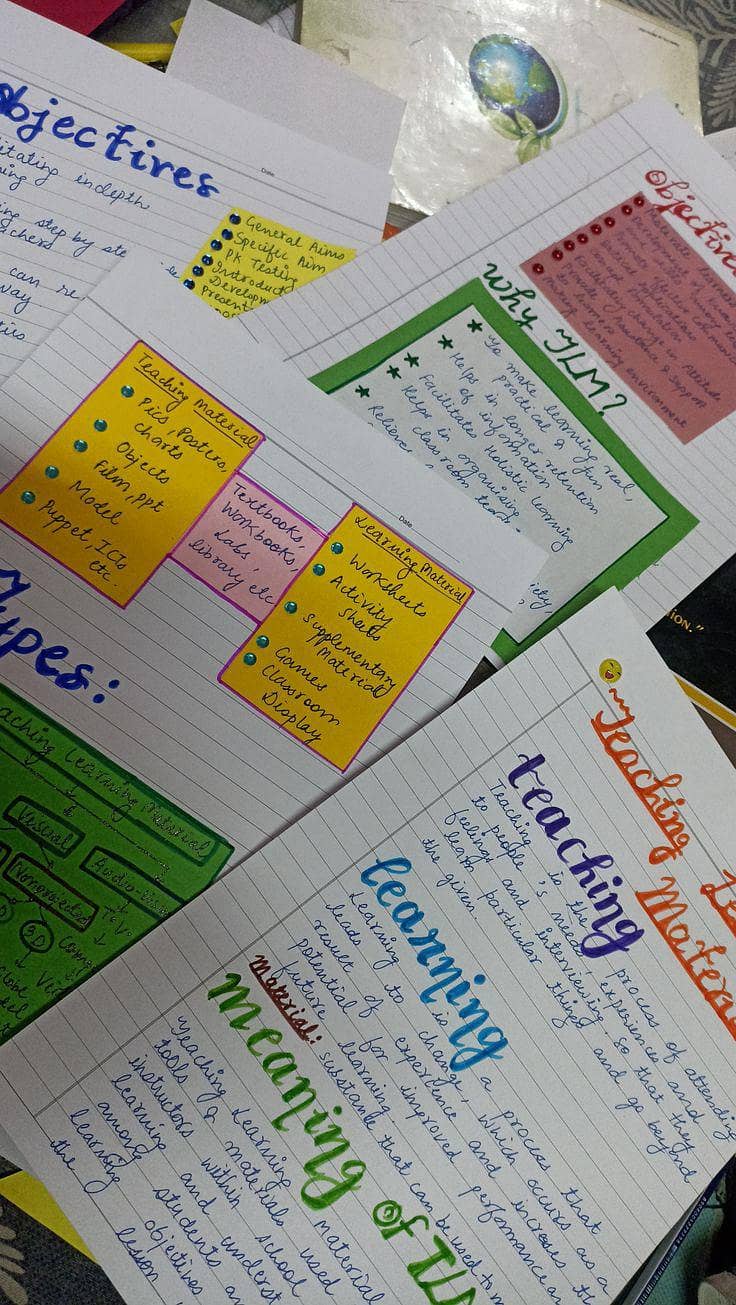 Objectives
itating indepth
ing step by ste
achers
can re
way
Date
General Aims
Specific Aim
PK Testing
Introduct
Developm
present
Objective
Why TLM?
To make learning real,
practical & fun
Helps in longer retention
of information
Facilitates Holistic learning
Helps in organising
classroom teach
Relieve
Teaching Material
Pics, Posters,
charts
Objects
Film, ppt
Model
Puppet, ICTs
etc.
Textbooks,
Workbooks,
Labs,
library, etc
Date
Learning Material
Worksheets
Activity
Sheets
Supplementary
Material
Games
Classroom
Display
ypes:
aching Learning Material
Visual
Audio-Vis
Nonprojected
T.V.
3D
ION."
Teaching Le
Materia
teaching
Teaching is the process of attending
to people's needs, experiences and
feelings and interviewing so that they
learn particular things and go beyond
the given.
learning
Learning is a process that
leads to change, which occurs as a
result of experience and increases th
potential for improved performance an
future learning.
Material: substance that can be used to m
meaning of TLM
Teaching Learning Material
tools & materials used
instructors within school
learning and underst
among students an
learning objectives
the lesson